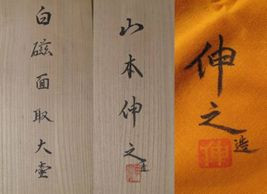 白磁面取大壷
山本伸之造
伸之造
伸